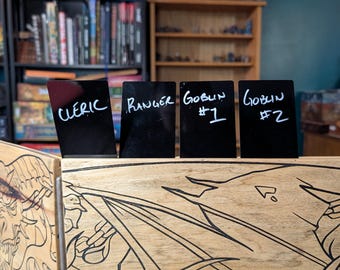 CLERIC
RANGER
GOBLIN
#1
GOBLIN
#2